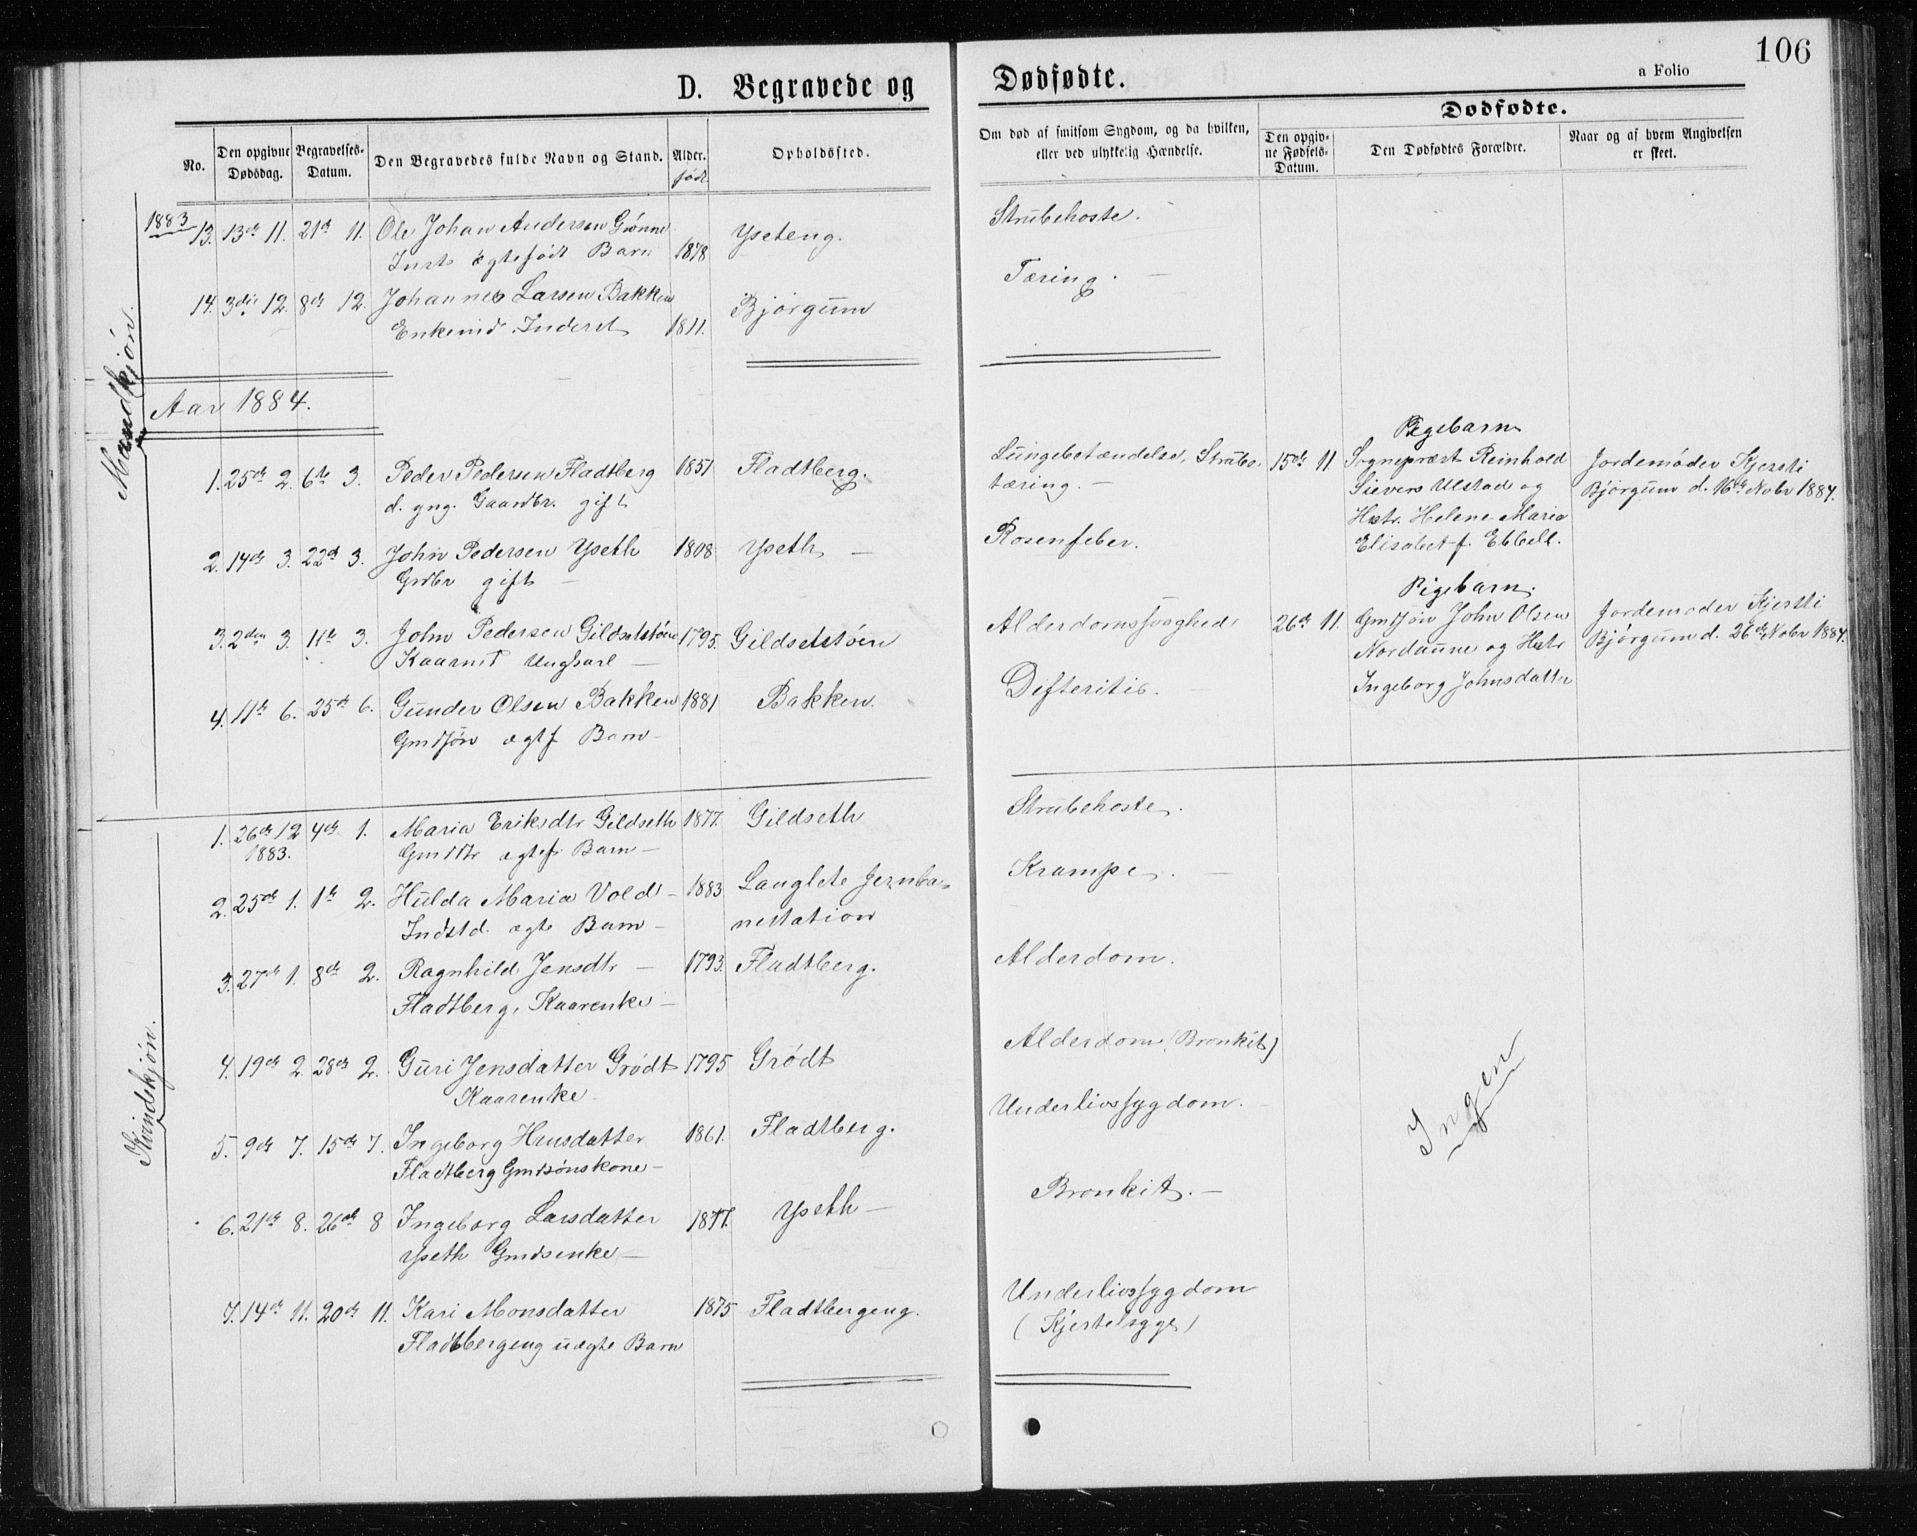 106
D. Begravede og Dødfødte.
a Folio
Dødfødte.
No.
Den opgivne Dødsdag.
Begravelses-Datum.
Den Begravedes fulde Navn og Stand.
Alder.
født
Opholdssted.
Om død af smitsom Sygdom, og da hvilken,
eller ved ulykkelig Hændelse.
Den opgiv-
ne Fødsels-
Datum.
Den Dødfødtes Forældre.
Naar og af hvem Angivelsen
er skeet.
Mandkjøn.
1883
13. 13de 11. 21de 11. Ole Johan Andersen Grønne 1878 Yseteng. Strubehoste.
Insts ægtefødt Barn
14. 3die 12. 8de 12. Johannes Larsen Bakken 1811. Bjørgum Tæring.
Enkemd. Inderst
Aar 1884.
1. 25de 2. 6te 3. Peder Pedersen Fladtberg 1851 Fladtberg. Lungebetændelse, Strube-
d. yng. Gaardbr. gift
tæring.
15de 11.
Pigebarn
Sogneprest Reinhold
Sievers Ulstad og
Hstr. Helene Maria
Elisabet f. Ebbell.
Jordemoder Kjersti
Bjørgum d. 16de Nobr 1884.
2. 14de 3. 22de 3. John Pedersen Yseth 1808 Yseth Rosenfeber.
Grdbr gift
3. 2den 3. 11te 3. John Pedersen Gildsetstøen 1795. Gildsetstøen Alderdomssvaghed
Kaarmd Ungkarl
26de 11.
Pigebarn.
Gmdsøn John Olsen
Nordaune og Hstr
Ingeborg Johnsdatter
Jordemoder Kjersti
Bjørgum d. 26de Nobr 1884.
4. 11te 6. 25de 6. Gunder Olsen Bakken 1881 Bakken. Difteritis.
Gmdsøn ægtf Barn
Kvindekjøn.
1. 26de 12 4de 1. Maria Eriksdtr Gildseth 1877. Gildseth Strubehoste.
1883. Gmddtr ægtef. Barn
2. 25de 1. 1te 2. Hulda Maria Vold 1883 Langlete Jernba- Krampe.
Indstd. ægte Barn
nestation
3. 27de 1. 8de 2. Ragnhild Jensdtr 1793. Fladtberg. Alderdom.
Fladtberg, Kaarenke
4. 19de 2. 28de 2. Guri Jensdatter Grødt 1795 Grødt Alderdom (Bronkit)
Kaarenke.
5. 9de 7. 15de 7. Ingeborg Hansdatter 1861. Fladtberg. Underlivssygdom.
Fladtberg Gmdsønskone
6. 21de 8. 26de 8 Ingeborg Larsdatter Yseth Bronkit.
Yseth Gmdsenke
7. 14de 11. 20de 11. Kari Monsdatter 1875 Fladtbergeng. Underlivssygdom
Fladtbergeng uægte Barn
(Kjertelsyge)
Ingen